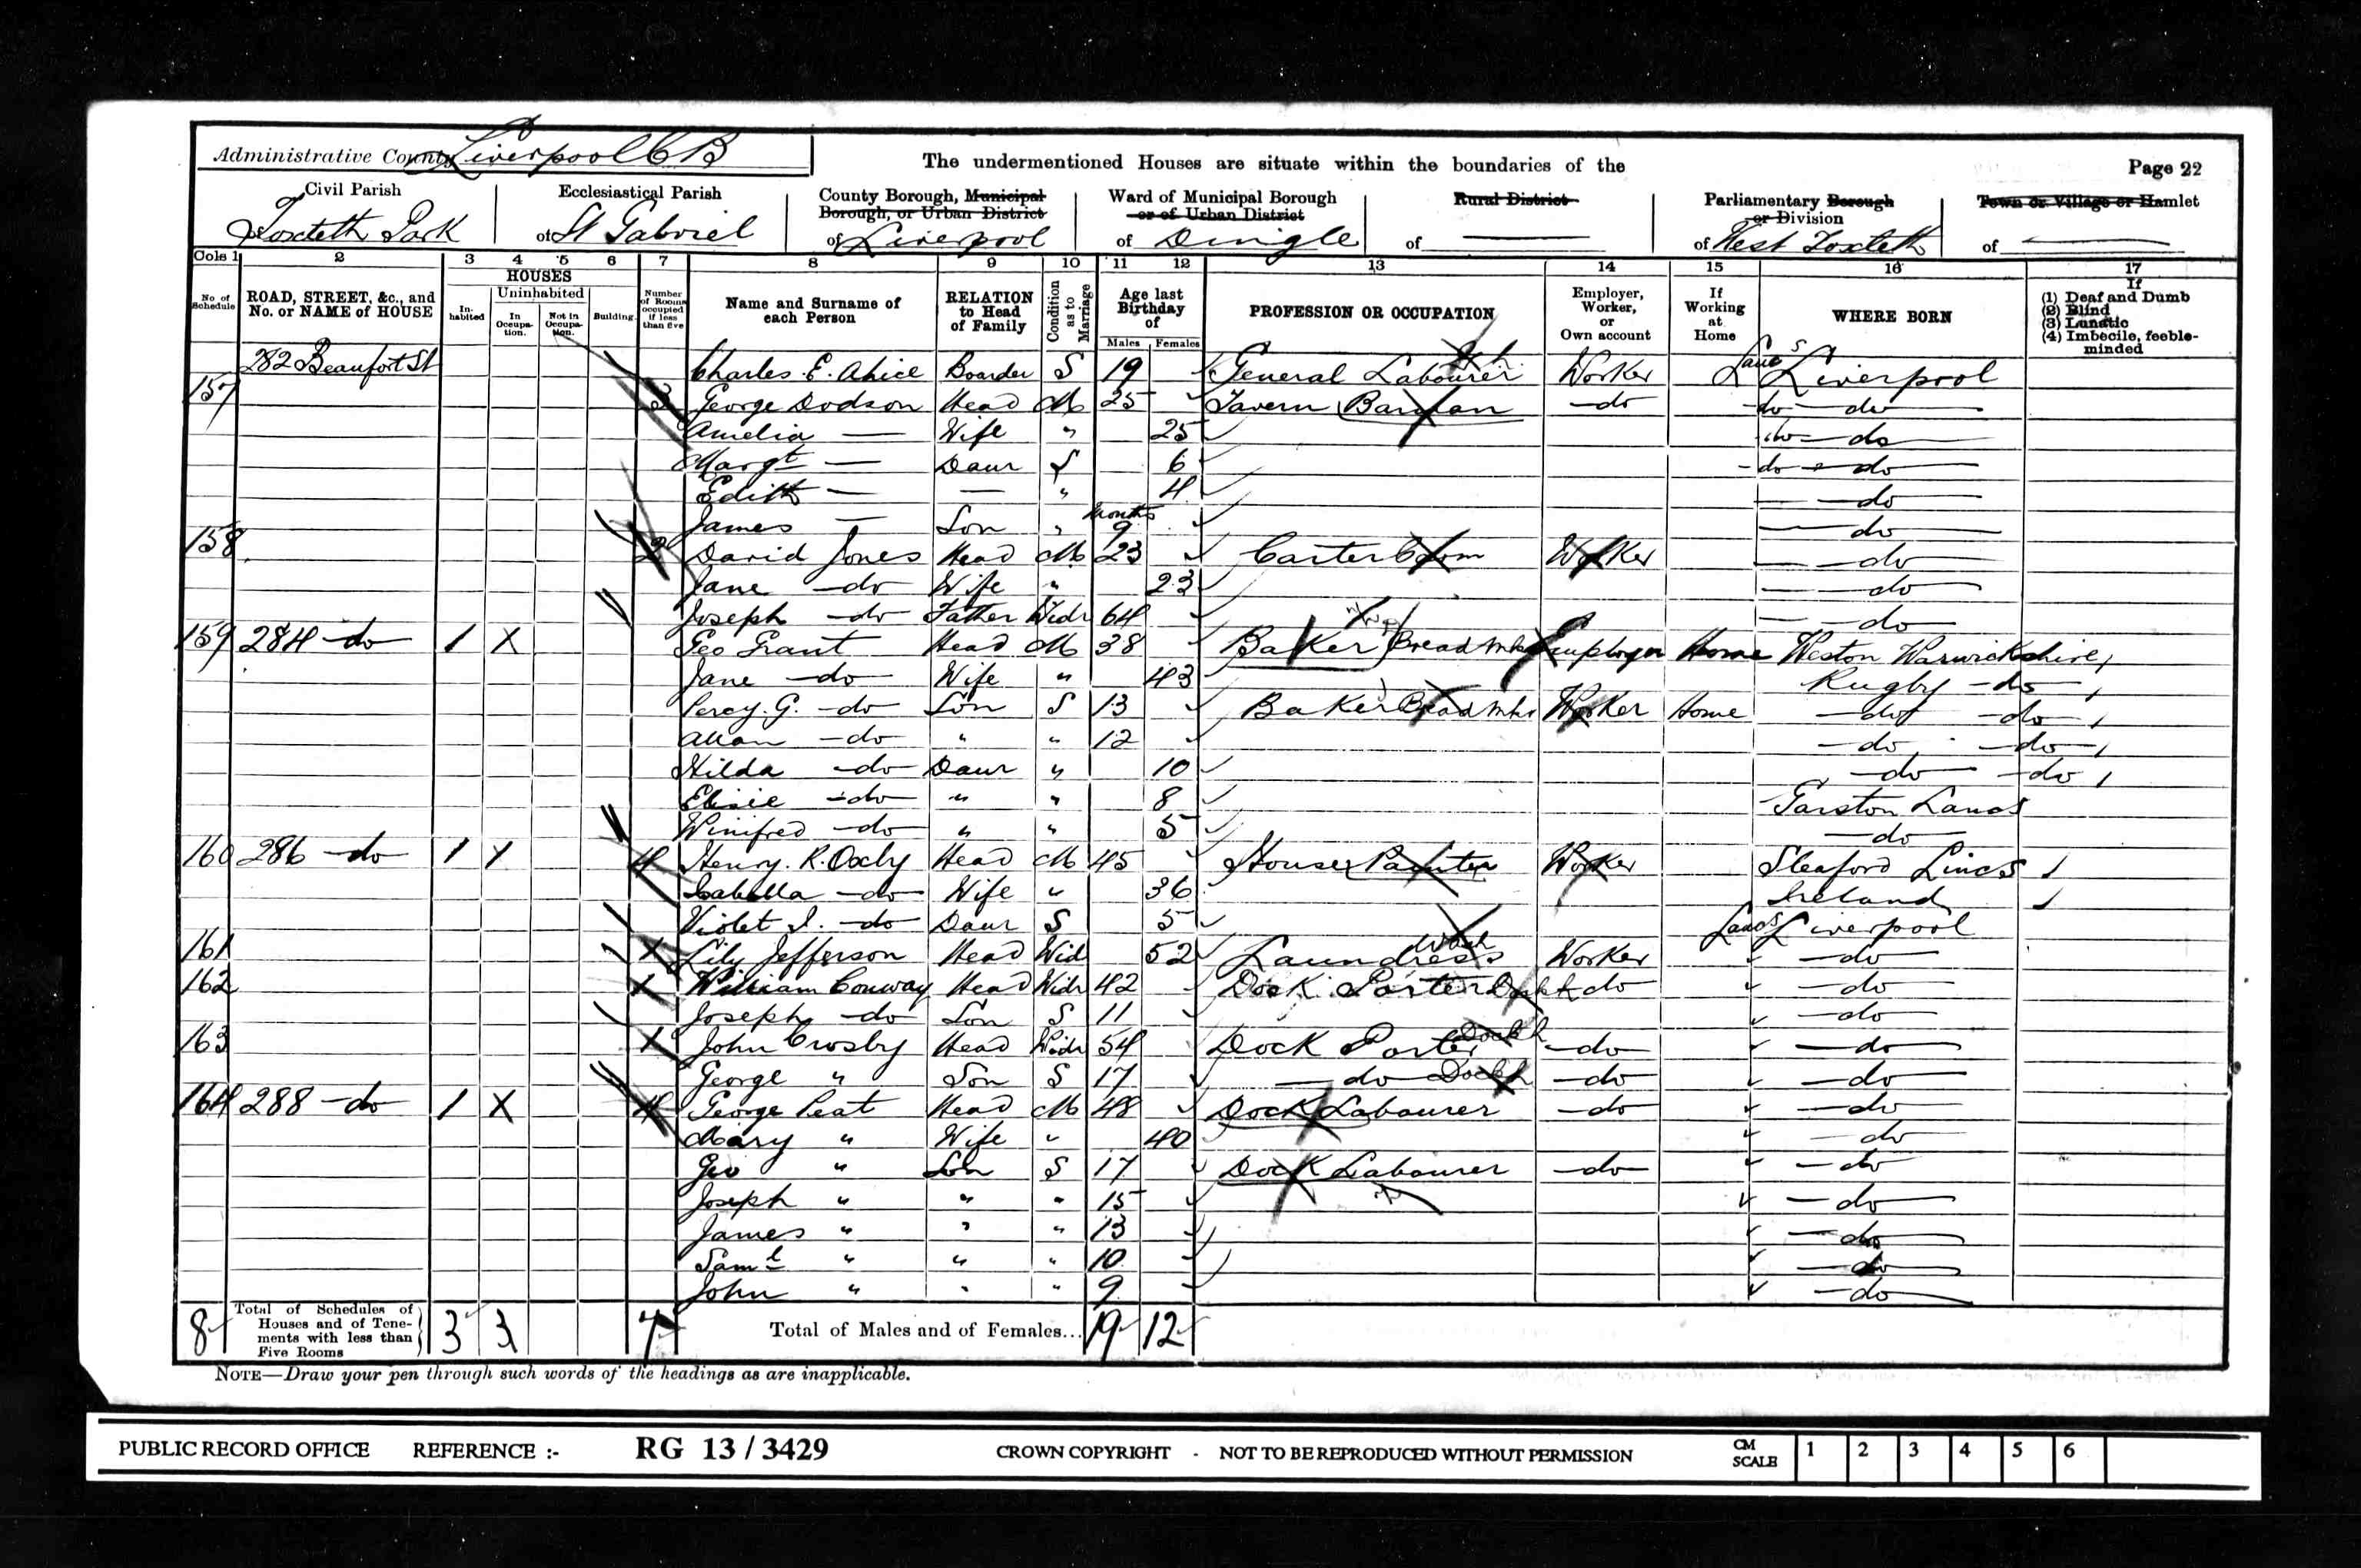 Administrative County Liverpool C B
The undermentioned Houses are situate within the boundaries of the
Page 22
Civil Parish
Toxteth Park
Ecclesiastical Parish
of St Gabriel
County Borough, Municipal Borough, or Urban District
of Liverpool
Ward of Municipal Borough or of Urban District
of Dingle
Rural District
of —
Parliamentary Borough or Division
of West Toxteth
Town or Village or Hamlet
of —
Cols 1 2 3 4 5 6 7 8 9 10 11 12 13 14 15 16 17
No of Schedule
ROAD, STREET, &c., and No. or NAME of HOUSE
HOUSES
Inhabited
Uninhabited
In Occupation.
Not in Occupation.
Building.
Number of Rooms occupied if less than five
Name and Surname of each Person
RELATION to Head of Family
Condition as to Marriage
Age last Birthday of
Males Females
PROFESSION OR OCCUPATION
Employer, Worker, or Own account
If Working at Home
WHERE BORN
If
(1) Deaf and Dumb
(2) Blind
(3) Lunatic
(4) Imbecile, feeble-minded
282 Beaufort St Charles E. Boarder S 19 General Labourer Worker Lancs Liverpool
157 3 George Dodson Head M 25 Tavern Barman -do- -do- -do-
Amelia — Wife " 25 -do- do
Margt — Daur S 6 -do- do
Edith — — " 4 — do
James — Son " months 9 — do
158 2 David Jones Head M 23 Carter Worker — do
Jane -do Wife " 23 — do
Joseph -do Father Widr 64 — do
159 284 -do 1 X Geo Grant Head M 38 Baker Bread Mkr Employer Home Weston Warwickshire
Jane -do Wife " 43 Rugby -do
Percy. G. -do Son S 13 Baker Bread Mkr Worker Home -do -do
Allan -do " " 12 -do -do
Hilda -do Daur " 10 -do -do
Elsie -do " " 8 Garston Lancs
Winifred -do " " 5 -do
160 286 -do 1 X 4 Henry. R. Oxby Head M 45 House Painter Worker Sleaford Lincs
Isabella -do Wife " 36 Ireland
Violet I. -do Daur S 5 Lancs Liverpool
161 1 Lily Jefferson Head Wid 52 Laundress Wash Worker " -do
162 1 William Conway Head Widr 42 Dock Porter do " -do
Joseph -do Son S 11 " -do
163 1 John Crosby Head Widr 54 Dock Porter -do " -do
George " Son S 17 -do -do " -do
164 288 -do 1 X 4 George Peat Head M 48 Dock Labourer -do " -do
Mary " Wife " 40 " -do
Geo " Son S 17 Dock Labourer -do " -do
Joseph " " " 15 " -do
James " " " 13 " -do
Saml " " " 10 " -do
John " " " 9 " -do
8 Total of Schedules of Houses and of Tenements with less than Five Rooms 3 3 7 Total of Males and of Females... 19 12
NOTE—Draw your pen through such words of the headings as are inapplicable.
PUBLIC RECORD OFFICE REFERENCE :- RG 13 / 3429 CROWN COPYRIGHT - NOT TO BE REPRODUCED WITHOUT PERMISSION CM SCALE 1 2 3 4 5 6